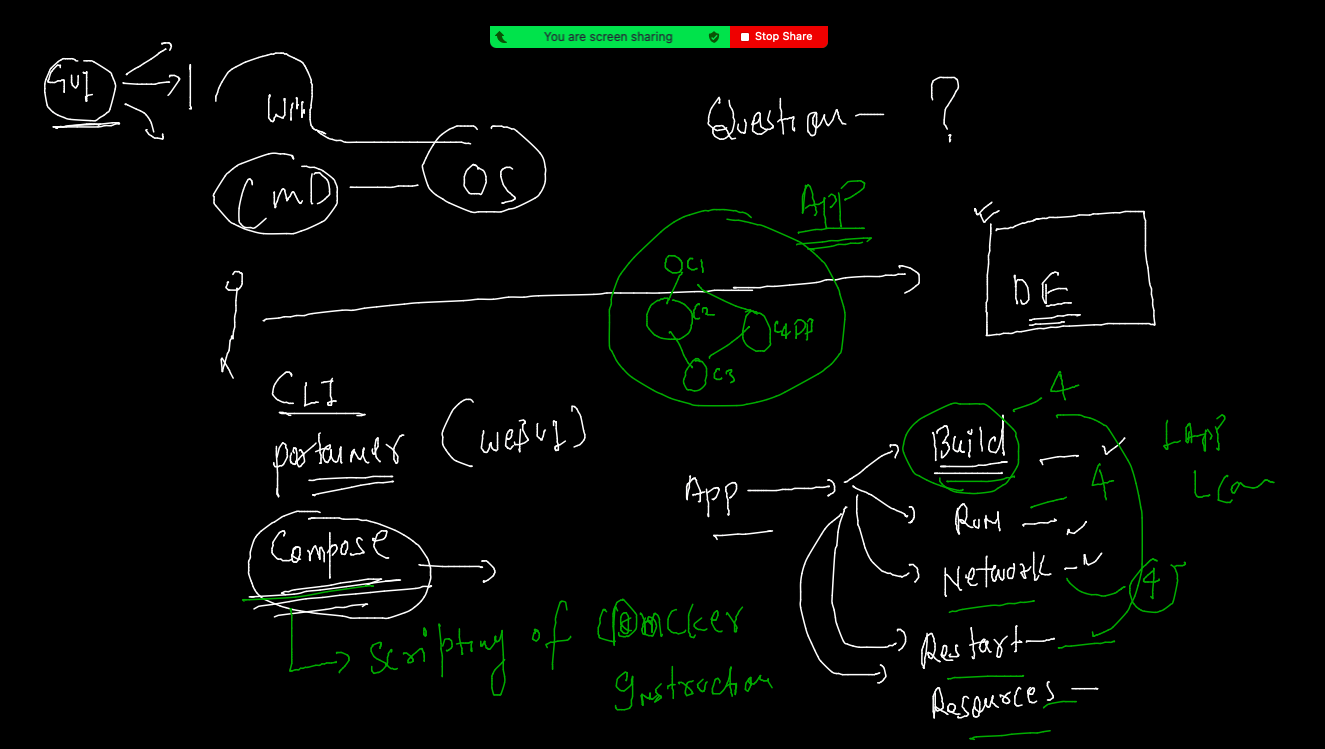 You are screen sharing
Stop Share
GUI
CMD
OS
Question — ?
APP
C1
C2
C3
DE
CLI
portainer (WEBUI)
Compose
Scripting of Docker
Instruction
App
Build
4
Run
4
Network
4
Restart
Resources